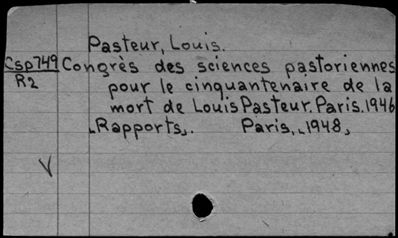 Pasteur, Louis.
Csp749 Congrès des sciences pastoriennes
R2 pour le cinquantenaire de la
mort de Louis Pasteur. Paris. 1946
[Rapports]. Paris, [1948]
√